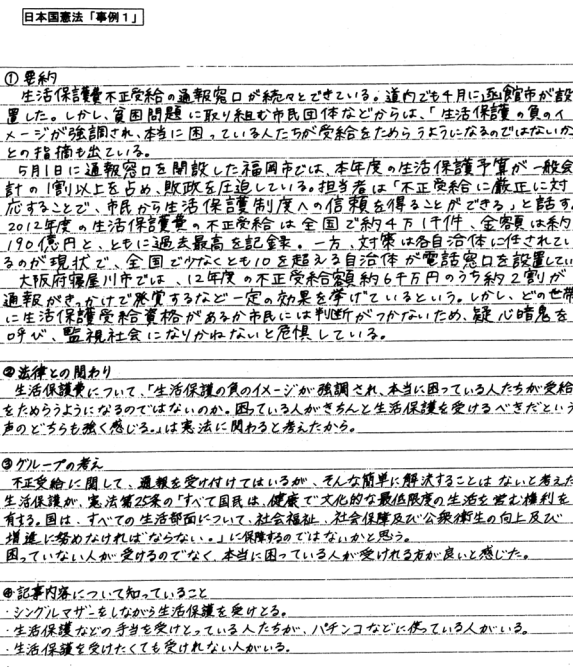 日本国憲法「事例1」
①要約
生活保護費不正受給の通報窓口が続々とできている。道内でも4月に函館市が設
置した。しかし、貧困問題に取り組む市民団体などからは、「生活保護の負のイ
メージが強調され、本当に困っている人たちが受給をためらうようになるのではないか」
との指摘も出ている。
5月1日に通報窓口を開設した福岡市では、本年度の生活保護予算が一般会
計の1割以上を占め、財政を圧迫している。担当者は「不正受給に厳正に対
応することで、市民から生活保護制度への信頼を得ることができる」と話す。
2012年度の生活保護費の不正受給は全国で約4万1千件、金額は約
190億円と、ともに過去最高を記録。一方、対策は各自治体に任されてい
るのが現状で、全国で少なくとも10を超える自治体が電話窓口を設置してい
大阪府寝屋川市では、12年度の不正受給額約6千万円のうち約2割が
通報がきっかけで発覚するなど一定の効果を挙げているという。しかし、どの世帯
に生活保護受給資格があるか市民には判断がつかないため、疑心暗鬼を
呼び、監視社会になりかねないと危惧している。
②法律との関わり
生活保護費について、「生活保護の負のイメージが強調され、本当に困っている人たちが受給
をためらうようになるのではないのか。困っている人がきちんと生活保護を受けるべきだという
声のどちらも強く感じる。」は憲法に関わると考えたから。
③グループの考え
不正受給に関して、通報を受け付けてはいるが、そんな簡単に解決することはないと考えた
生活保護が、憲法第25条の「すべて国民は、健康で文化的な最低限度の生活を営む権利を
有する。国は、すべての生活部面について、社会福祉、社会保障及び公衆衛生の向上及び
増進に努めなければならない。」に保障するのではないかと思う。
困っていない人が受けるのでなく、本当に困っている人が受けれる方が良いと感じた。
④記事内容について知っていること
・シングルマザーをしながら生活保護を受けとる。
・生活保護などの手当を受けとっている人たちが、パチンコなどに使っている人がいる。
・生活保護を受けたくても受けれない人がいる。